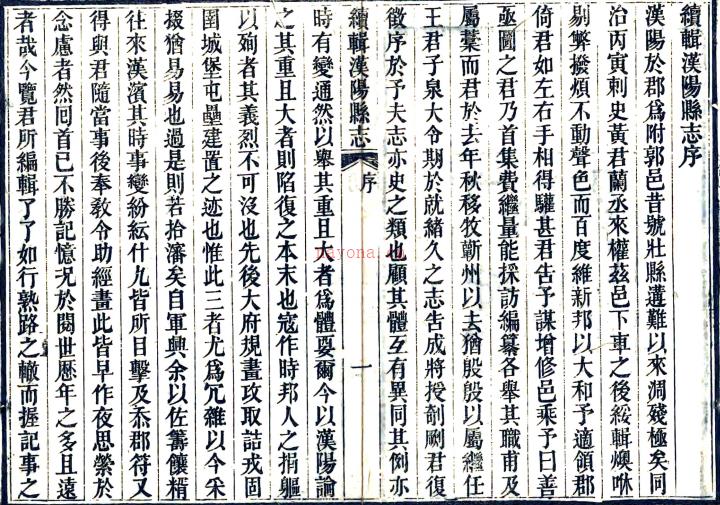 續輯漢陽縣志序
漢陽於郡爲附郭邑昔號壯縣遘難以來凋殘極矣同
治丙寅刺史黃君蘭丞來權茲邑下車之後綏輯燠咻
剔弊撥煩不動聲色而百度維新邦以大和予適領郡
倚君如左右手相得驩甚君告予謀增修邑乘予曰善
亟圖之君乃首集費繼量能採訪編纂各舉其職甫及
屬藳而君於去年秋移牧蘄州以去猶殷殷以屬繼任
王君子泉大令期於就緒久之志告成將授剞劂君復
徵序於予夫志亦史之類也顧其體互有異同其例亦
續輯漢陽縣志 序 一
時有變通然以舉其重且大者爲體要爾今以漢陽論
之其重且大者則陷復之本末也寇作時邦人之捐軀
以殉者其義烈不可沒也先後大府規畫攻取詰戎固
圉城堡屯壘建置之迹也惟此三者尤爲冗雜以今采
掇猶易易也過是則若拾瀋矣自軍興余以佐籌饟糈
往來漢濱其時事變紛紜什九皆所目擊及忝郡符又
得與君隨當事後奉敎令助經畫此皆早作夜思縈於
念慮者然回首已不勝記憶况於閱世歷年之多且遠
者哉今覽君所編輯了了如行熟路之轍而握記事之